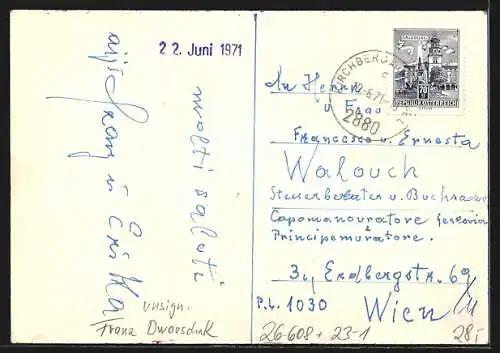 22. Juni 1971
molti saluti
Franz u. Erika
unsign.
Franz Dworschak
KIRCHBERG
2880
70
REPUBLIK ÖSTERREICH
An Herrn
u. Frau
Francesco u. Ernesta
Walouch
Steuerberater u. Buchrador
Capomanovratore
&
Principemuratore.
3., Erdbergstr. 69
P.L. 1030 Wien
26-608 + 23-1
28,-